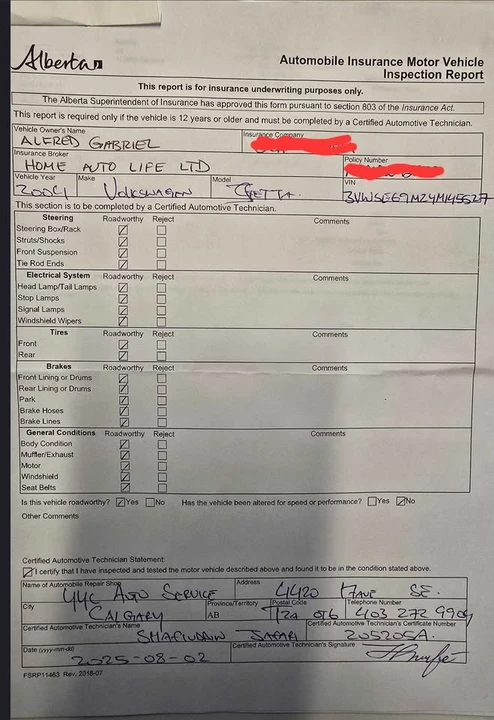 Alberta
Automobile Insurance Motor Vehicle
Inspection Report
This report is for insurance underwriting purposes only.
The Alberta Superintendent of Insurance has approved this form pursuant to section 803 of the Insurance Act.
This report is required only if the vehicle is 12 years or older and must be completed by a Certified Automotive Technician.
Vehicle Owner's Name Insurance Company
ALFRED GABRIEL
Insurance Broker Policy Number
HOME AUTO LIFE LTD
Vehicle Year Make Model VIN
2004 VOLKSWAGEN JETTA 3VWSE69M24M145527
This section is to be completed by a Certified Automotive Technician.
Steering Roadworthy Reject Comments
Steering Box/Rack
Struts/Shocks
Front Suspension
Tie Rod Ends
Electrical System Roadworthy Reject Comments
Head Lamp/Tail Lamps
Stop Lamps
Signal Lamps
Windshield Wipers
Tires Roadworthy Reject Comments
Front
Rear
Brakes Roadworthy Reject Comments
Front Lining or Drums
Rear Lining or Drums
Park
Brake Hoses
Brake Lines
General Conditions Roadworthy Reject Comments
Body Condition
Muffler/Exhaust
Motor
Windshield
Seat Belts
Is this vehicle roadworthy? Yes No Has the vehicle been altered for speed or performance? Yes No
Other Comments
Certified Automotive Technician Statement:
I certify that I have inspected and tested the motor vehicle described above and found it to be in the condition stated above.
Name of Automobile Repair Shop Address
YYC AUTO SERVICE 4420 AVE SE.
City Province/Territory Postal Code Telephone Number
CALGARY AB 403 272 9909
Certified Automotive Technician's Name Certified Automotive Technician's Certificate Number
JAFARI 205205A
Date (yyyy-mm-dd) Certified Automotive Technician's Signature
2025-08-02
FSRP11463 Rev. 2018-07